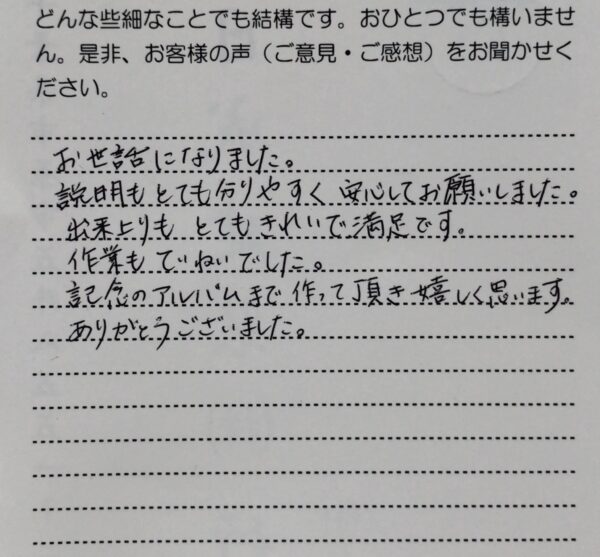 どんな些細なことでも結構です。おひとつでも構いませ
ん。是非、お客様の声（ご意見・ご感想）をお聞かせく
ださい。
お世話になりました。
説明もとても分りやすく安心してお願いしました。
出来上りもとてもきれいで満足です。
作業もていねいでした。
記念のアルバムまで作って頂き嬉しく思います。
ありがとうございました。